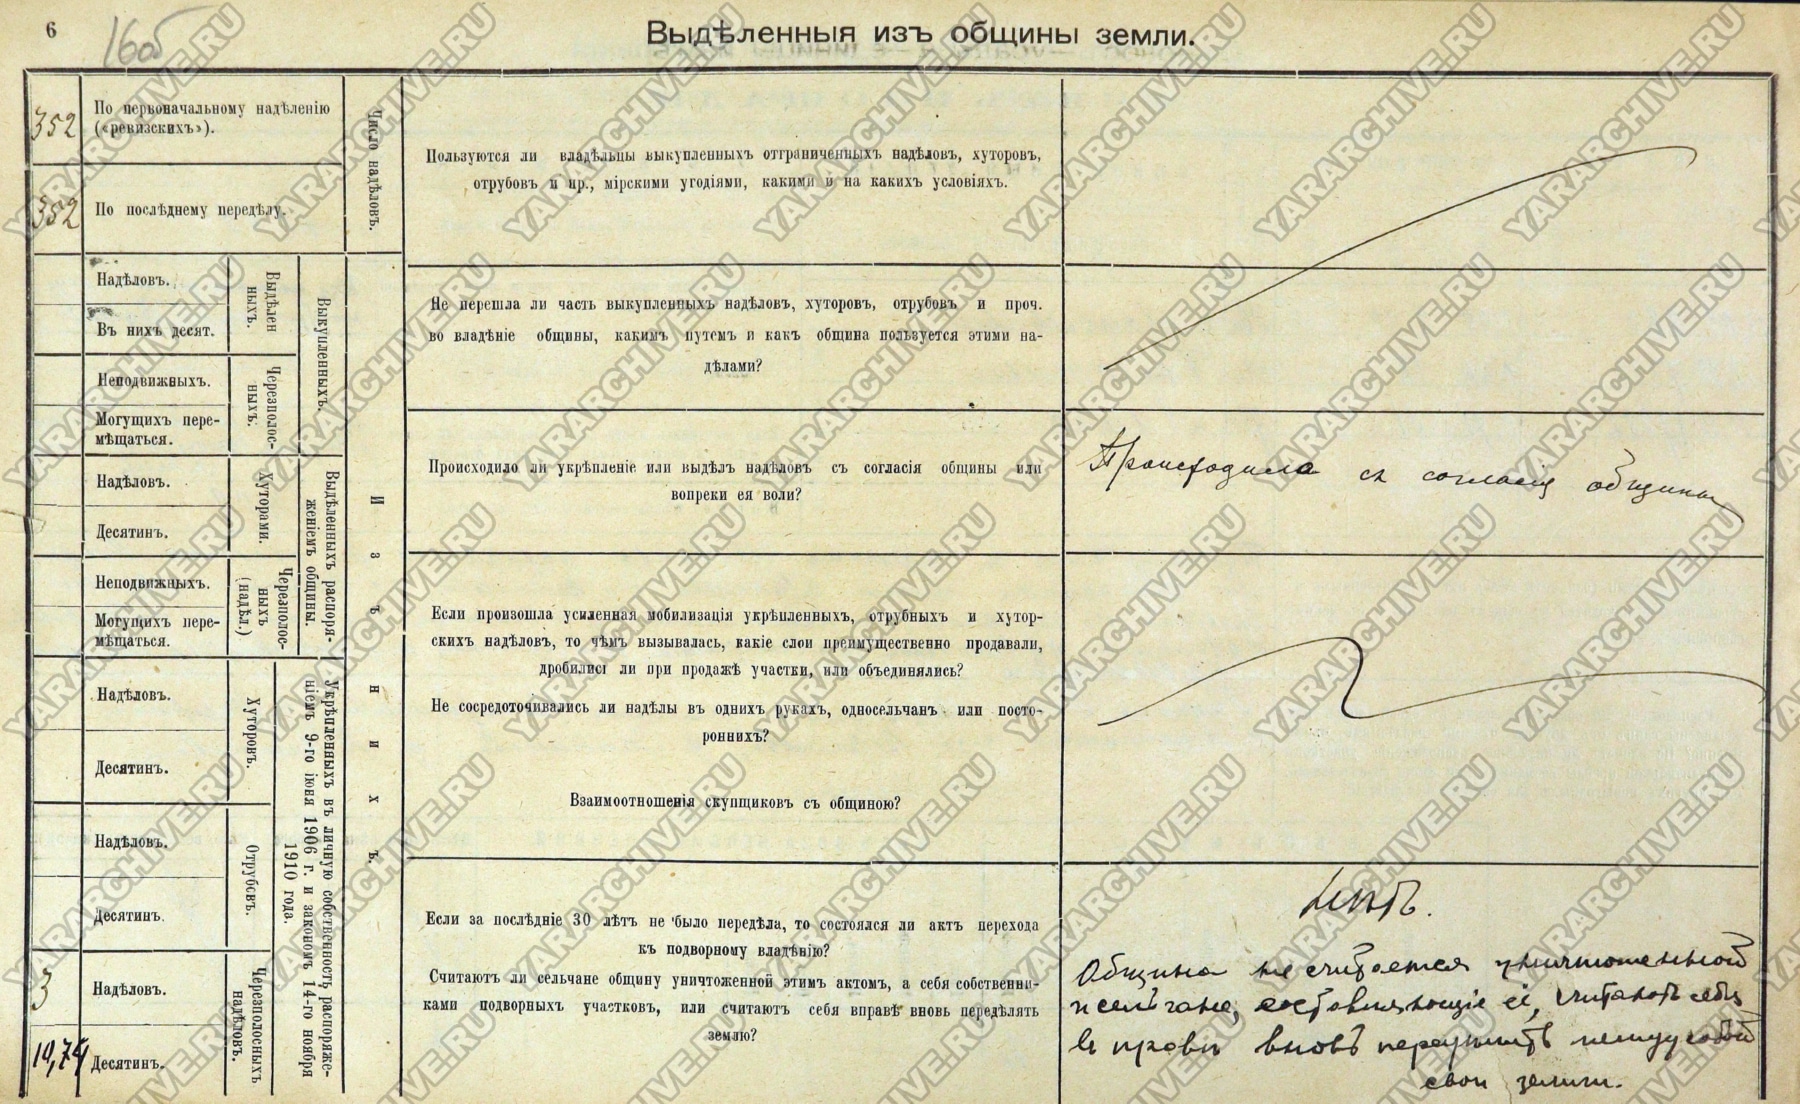 6
16об
Выдѣленныя изъ общины земли.
352
По первоначальному надѣленію
(«ревизскихъ»).
352
По послѣднему передѣлу.
Число надѣловъ.
Изъ нихъ.
Выкупленныхъ.
Выдѣлен
ныхъ.
Надѣловъ.
Въ нихъ десят.
Черезполос-
ныхъ.
Неподвижныхъ.
Могущихъ пере-
мѣщаться.
Выдѣленныхъ распоря-
женіемъ общины.
Хуторами.
Надѣловъ.
Десятинъ.
Черезполос-
ныхъ
(надѣл.)
Неподвижныхъ.
Могущихъ пере-
мѣщаться.
Укрѣпленныхъ въ личную собственность распоряже-
ніемъ 9-го іюня 1906 г. и закономъ 14-го ноября
1910 года.
Хуторовъ.
Надѣловъ.
Десятинъ.
Отрубевъ.
Надѣловъ.
Десятинъ.
Черезполосныхъ
надѣловъ.
3
Надѣловъ.
19,74
Десятинъ.
Пользуются ли владѣльцы выкупленныхъ отграниченныхъ надѣловъ, хуторовъ,
отрубовъ и пр., мірскими угодіями, какими и на какихъ условіяхъ.
Не перешла ли часть выкупленныхъ надѣловъ, хуторовъ, отрубовъ и проч.
во владѣніе общины, какимъ путемъ и какъ община пользуется этими на-
дѣлами?
Происходило ли укрѣпленіе или выдѣлъ надѣловъ съ согласія общины или
вопреки ея воли?
Происходила съ согласія общины
Если произошла усиленная мобилизація укрѣпленныхъ, отрубныхъ и хутор-
скихъ надѣловъ, то чѣмъ вызывалась, какіе слои преимущественно продавали,
дробились ли при продажѣ участки, или объединялись?
Не сосредоточивались ли надѣлы въ однихъ рукахъ, односельчанъ или посто-
роннихъ?
Взаимоотношенія скупщиковъ съ общиною?
Если за послѣдніе 30 лѣтъ не было передѣла, то состоялся ли актъ перехода
къ подворному владѣнію?
Считаютъ ли сельчане общину уничтоженной этимъ актомъ, а себя собственни-
ками подворныхъ участковъ, или считаютъ себя вправѣ вновь передѣлять
землю?
Нѣтъ.
Община не считается уничтоженной
и сельчане, составляющіе её, считаютъ себя
въ правѣ вновь передѣлить между собой
свои земли.
YARARCHIVE.RU